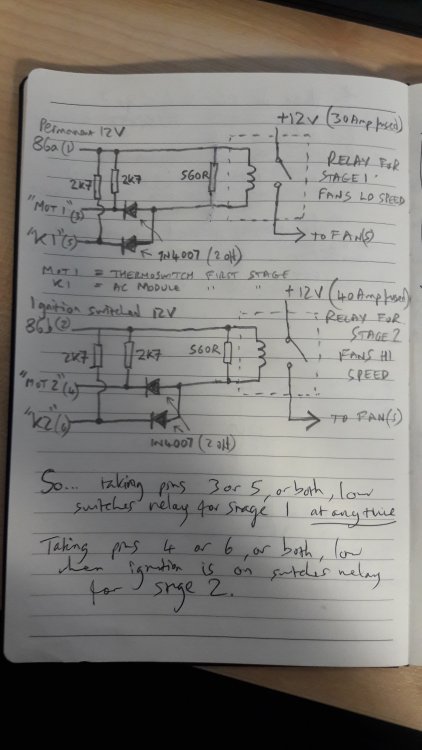 +12V (30 Amp fused)
Permanent 12V
86a (1)
2k7
2k7
560R
RELAY FOR
STAGE 1
FANS LO SPEED
"MOT 1" (3)
"K1" (5)
TO FAN(S)
1N4007 (2 off)
MOT1 = THERMOSWITCH FIRST STAGE
K1 = AC MODULE " "
+12V (40 Amp fused)
Ignition switched 12V
86b (2)
2k7
2k7
560R
RELAY FOR
STAGE 2
FANS HI
SPEED
"MOT 2" (4)
"K2" (6)
TO FAN(S)
1N4007 (2 off)
So... taking pins 3 or 5, or both, low
switches relay for stage 1 at any time
Taking pins 4 or 6, or both, low
when ignition is on switches relay
for stage 2.